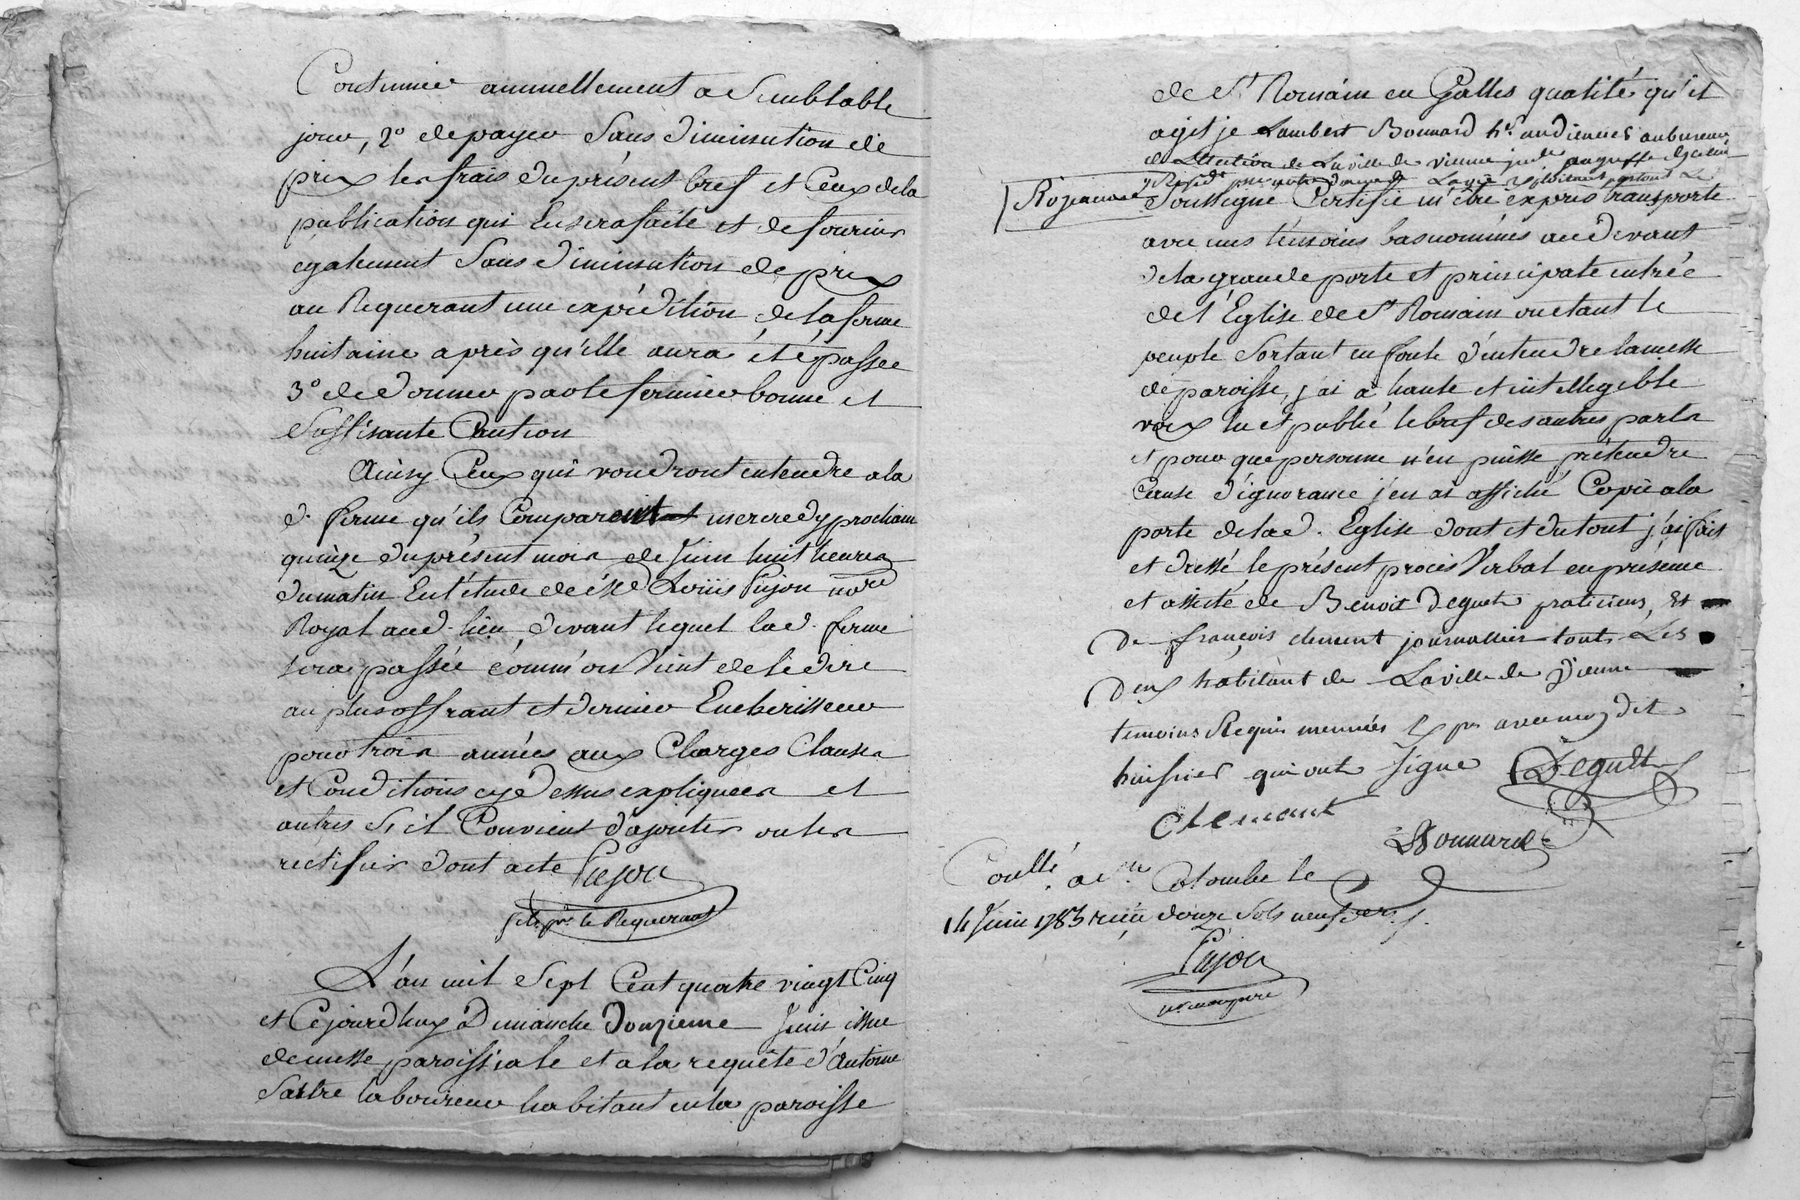 Continuer annuellement a Semblable
jour, 2° de payer Sans diminution de
prix les frais du présent bref et Ceux de la
publication qui En sera faite et de fournir
egalement Sans diminution de prix
au Requerant une expédition de la ferme
huitaine après qu'elle aura été passée
3° de donner par le fermier bonne et
Suffisante Caution
Ainsy Ceux qui voudront entendre a la
d. ferme qu'ils Comparoit mercredy prochain
quinze du présent mois de Juin huit heures
du matin En l'étude de Me Louis Pujon nore
Royal aud. lieu, devant lequel lad. ferme
sera passée comm'on Vient de le dire
au plus offrant et dernier Encherisseur
pour trois années aux Charges Clauses
et Conditions cy dessus expliquées et
autres S'il Convient d'ajouter ou les
réctifier dont acte Pujon
pr. le Requerant
L'an mil Sept Cent quatre vingt Cinq
et Cejourd'huy Dimanche douzieme Juin issue
de messe paroissiale et a la requête d'Antoine
Sastre laboureur habitant en la paroisse
de St Romain en Galles qualité qu'il
agit je Lambert Bonnard hr audiencier au bureau
de La ville de vienne
Soussigné Certifie m'être exprès transporté
avec mes témoins bas nommés au devant
de la grande porte et principale entrée
de l'Eglise de St Romain ou etant le
peuple Sortant en foule d'entendre la messe
de paroisse, j'ai à haute et intellegible
voix lu et publié le bref des autres parts
et pour que personne n'en puisse prétendre
Cause d'ignorance j'en ai affiché Copie a la
porte de lad. Eglise dont et du tout j'ai fait
et dressé le présent procès Verbal en présence
et assisté de Benoit Degult praticien, et
De françois clement journallier touts Les
Deux habitant de La ville de Vienne
temoins Requis mennés Exprs avec moy dit
huissier qui ont Signé Degult
Clemant
Bonnard
Conllé a Ste Colombe le
14 Juin 1785 reçu douze Sols neuf den.
Pujon